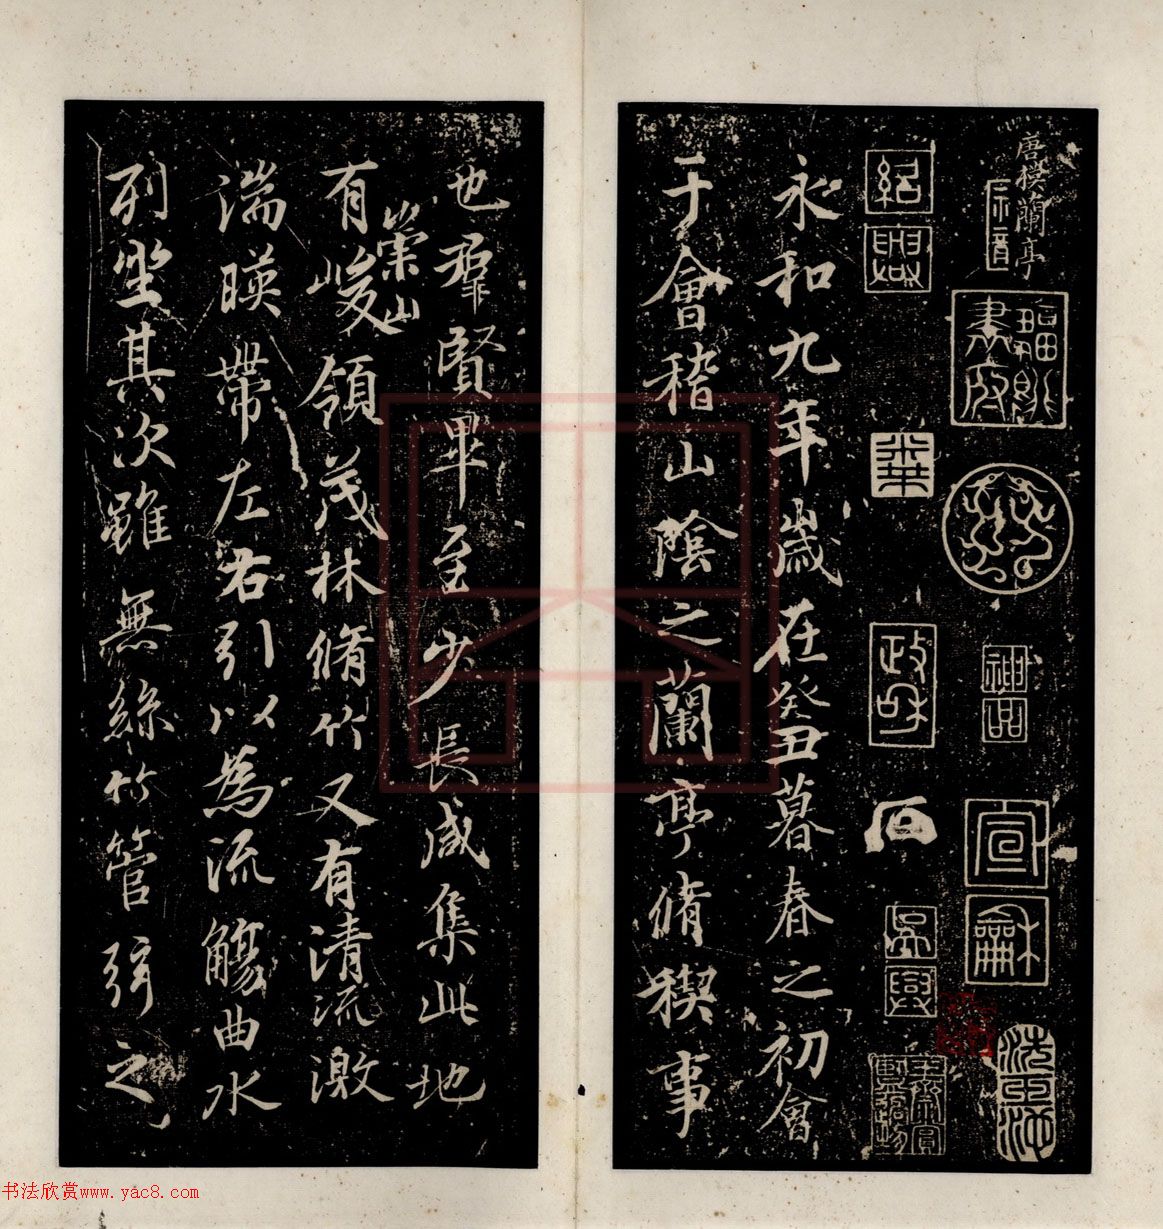 唐模蘭亭
宣龢
紹興
政和
吳興
永和九年歲在癸丑暮春之初會
于會稽山陰之蘭亭脩稧事
也羣賢畢至少長咸集此地
有崇山峻領茂林脩竹又有清流激
湍暎帶左右引以為流觴曲水
列坐其次雖無絲竹管弦之
书法欣赏www.yac8.com